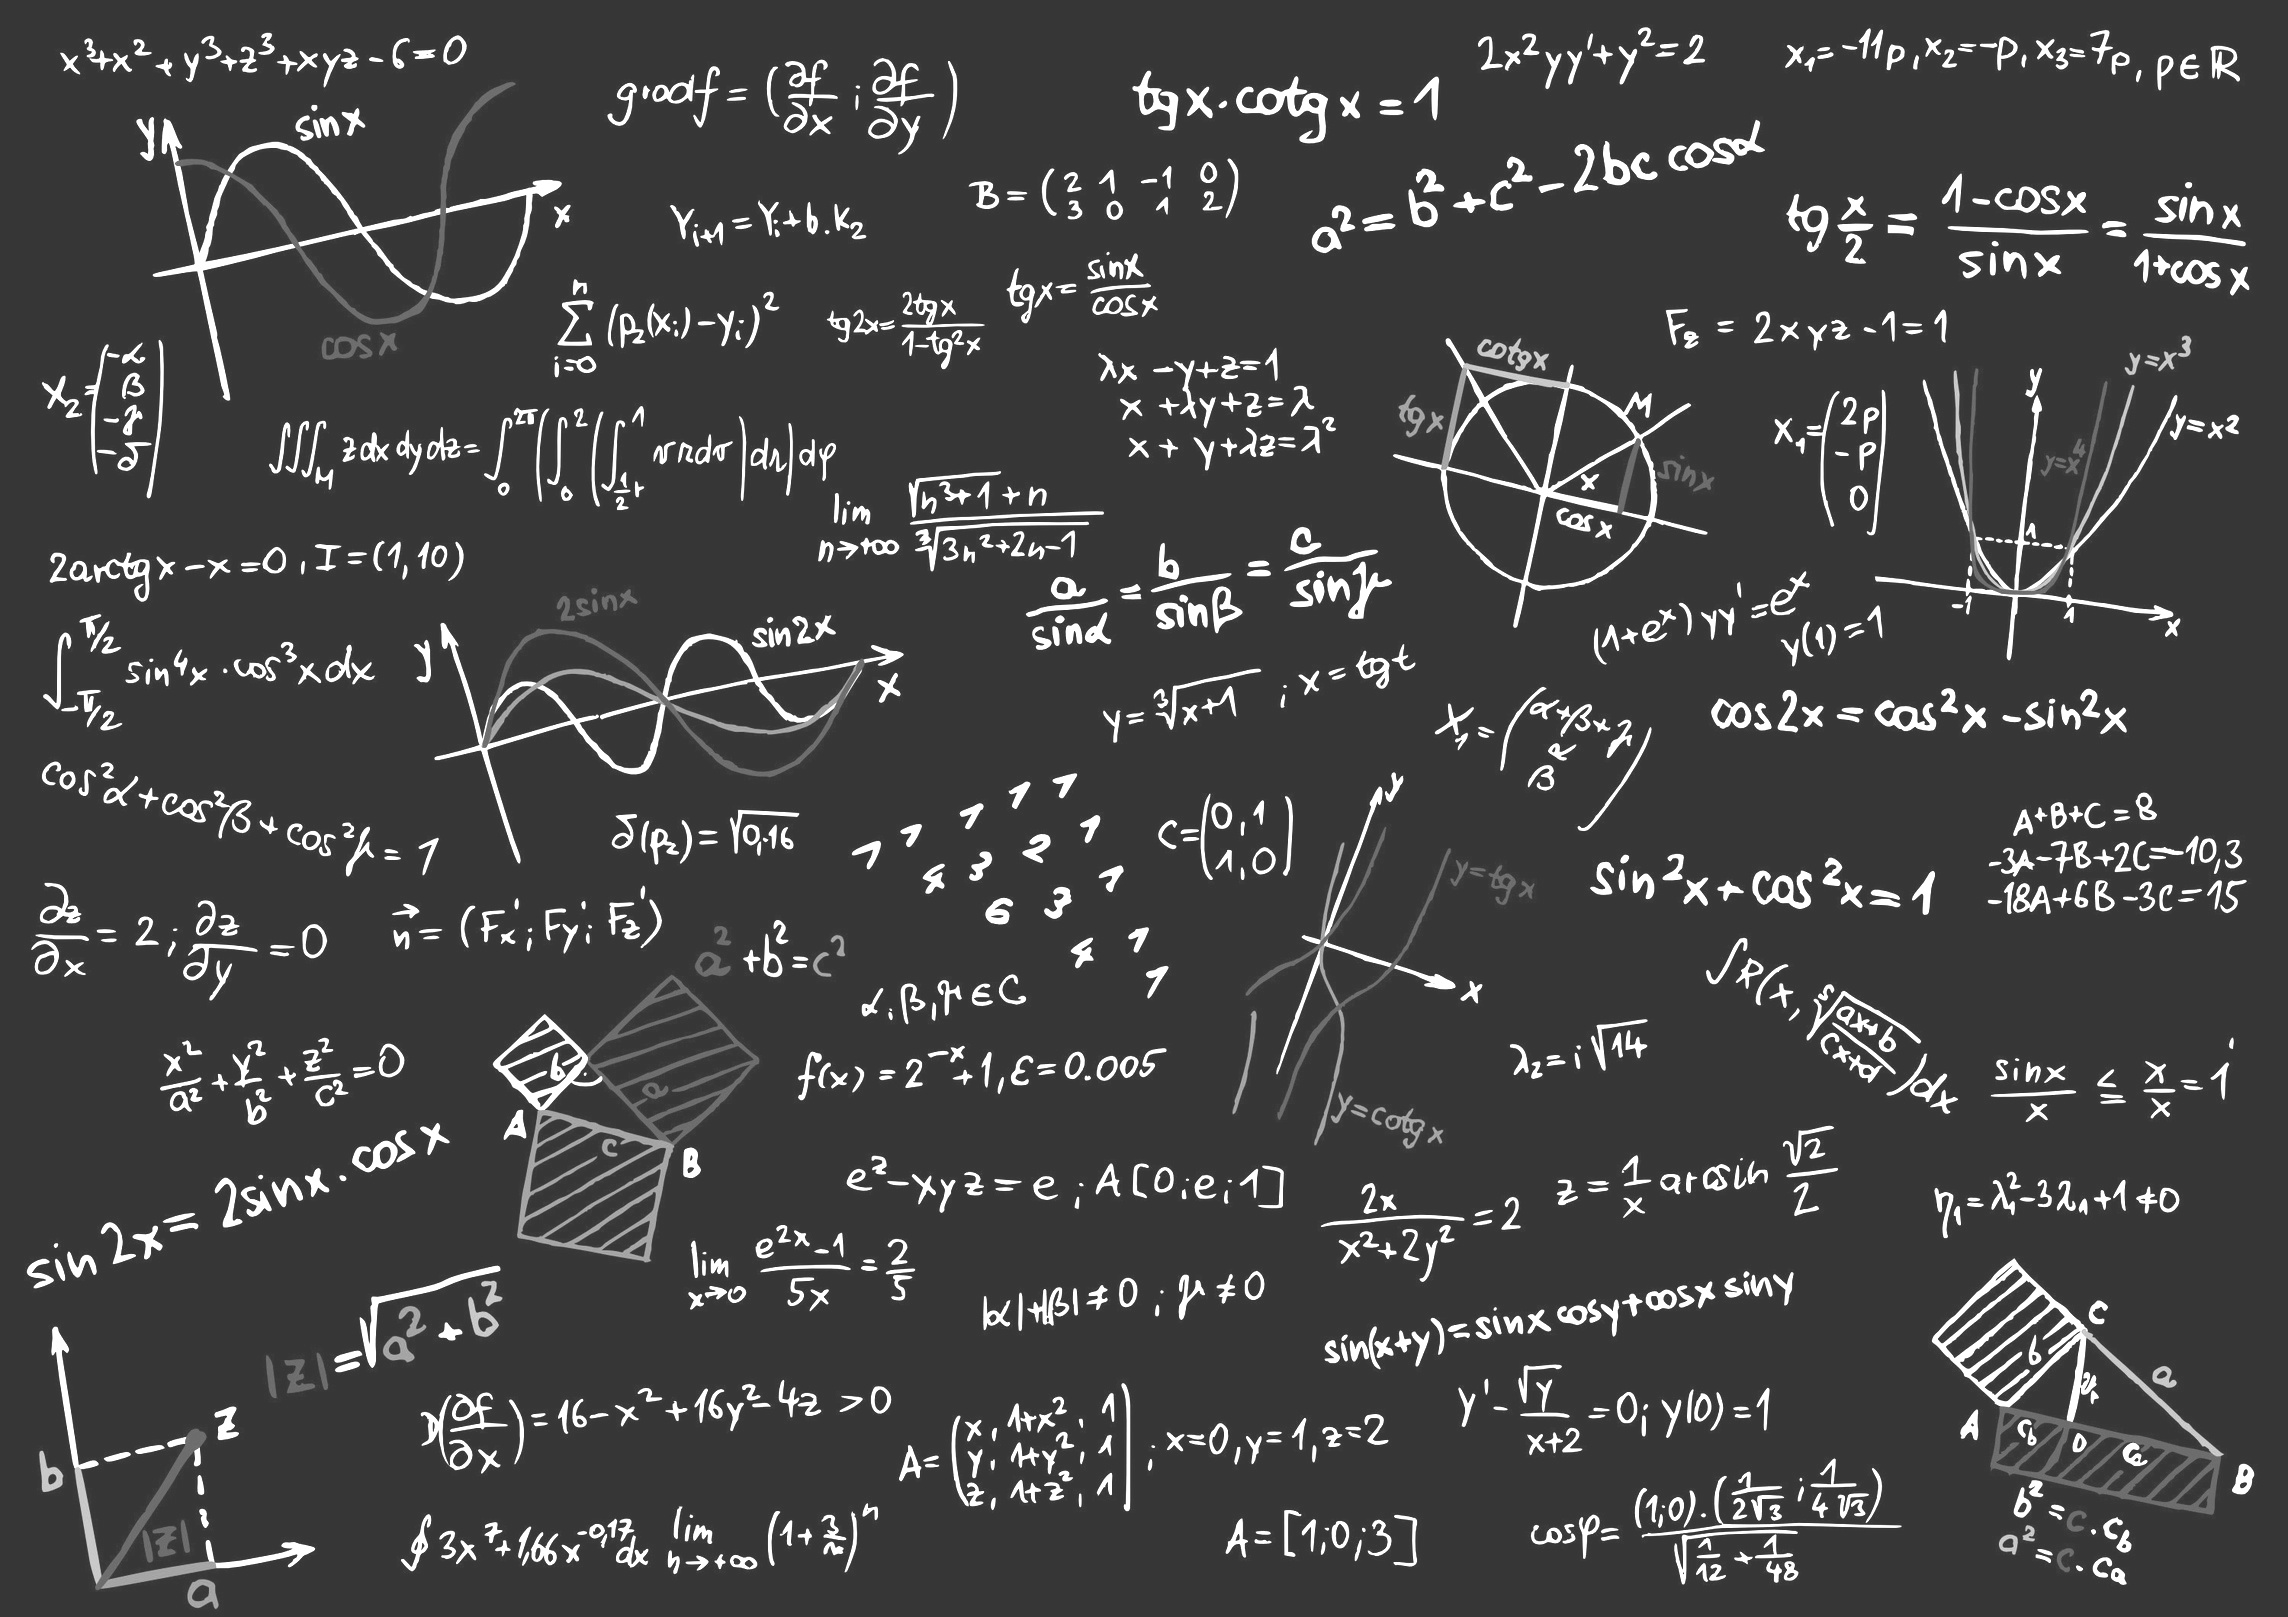 x³+x²+y³+z³+xyz-6=0
gradf=(∂f/∂x;∂f/∂y)
tgx·cotgx=1
2x²yy'+y²=2
x₁=-11p,x₂=-p,x₃=7p,p∈ℝ
y
sinx
x
cosx
Y_{i+1}=Y_i+b.K₂
B=(2 1 -1 0
3 0 1 2)
a²=b²+c²-2bc cosα
tg x/2=(1-cosx)/sinx=sinx/(1+cosx)
∑_{i=0}^{n}(p₂(x_i)-y_i)²
tg2x=2tgx/(1-tg²x)
tgx=sinx/cosx
F_z=2xyz-1=1
X₂=(-α
β
-γ
-δ)
λx-y+z=1
x+λy+z=λ
x+y+λz=λ²
cotgx
tgx
M
sinx
x
cosx
X₁=(2p
-p
0)
y
y=x³
y=x²
y=x⁴
1
-1
1
x
∫∫∫_M zdxdydz=∫₀^{2π}(∫₀²(∫_{½r}^1
lim_{n→+∞} (√(n³+1)+n)/∛(3n²+2n-1)
2arctgx-x=0,I=(1,10)
a/sinα=b/sinβ=c/sinγ
(1+e^x)yy'=e^x
y(1)=1
∫_{-π/2}^{π/2} sin⁴x·cos³xdx
y
2sinx
sin2x
x
y=∛(x+1);x=tgt
cos2x=cos²x-sin²x
cos²α+cos²β+cos²γ=1
δ(p₂)=√0,16
1 1 1 1 1
4 3 2 1
6 3 1
4 1
1
C=(0,1
1,0)
y
y=tgx
x
y=cotgx
sin²x+cos²x=1
A+B+C=8
-3A-7B+2C=-10,3
-18A+6B-3C=15
∂z/∂x=2;∂z/∂y=0
n⃗=(F'x;F'y;F'z)
a²+b²=c²
α,β,γ∈C
b
a
A
c
B
x²/a²+y²/b²+z²/c²=0
f(x)=2^{-x}+1,ε=0.005
λ₂=i√14
sinx/x≤x/x=1
sin2x=2sinx·cosx
e^z-xyz=e;A[0;e;1]
2x/(x²+2y²)=2
z=1/x arcsin √2/2
η₁=λ₁²-3λ₁+1≠0
lim_{x→0} (e^{2x}-1)/5x=2/5
|α|+|β|≠0;γ≠0
sin(x+y)=sinxcosy+cosxsiny
|z|=√(a²+b²)
z
b
|z|
a
D(∂f/∂x)=16-x²+16y²-4z>0
A=(x,1+x²,1
y,1+y²,1
z,1+z²,1);x=0,y=1,z=2
y'-√y/(x+2)=0;y(0)=1
C
b
a
A
D
B
b²=c·c_b
a²=c·c_a
∮3x⁷+1,66x^{-0,17}dx
lim_{n→+∞}(1+3/n)^n
A=[1;0;3]
cosφ=(1;0)·(1/2√3;1/4√3)/√(1/12+1/48)